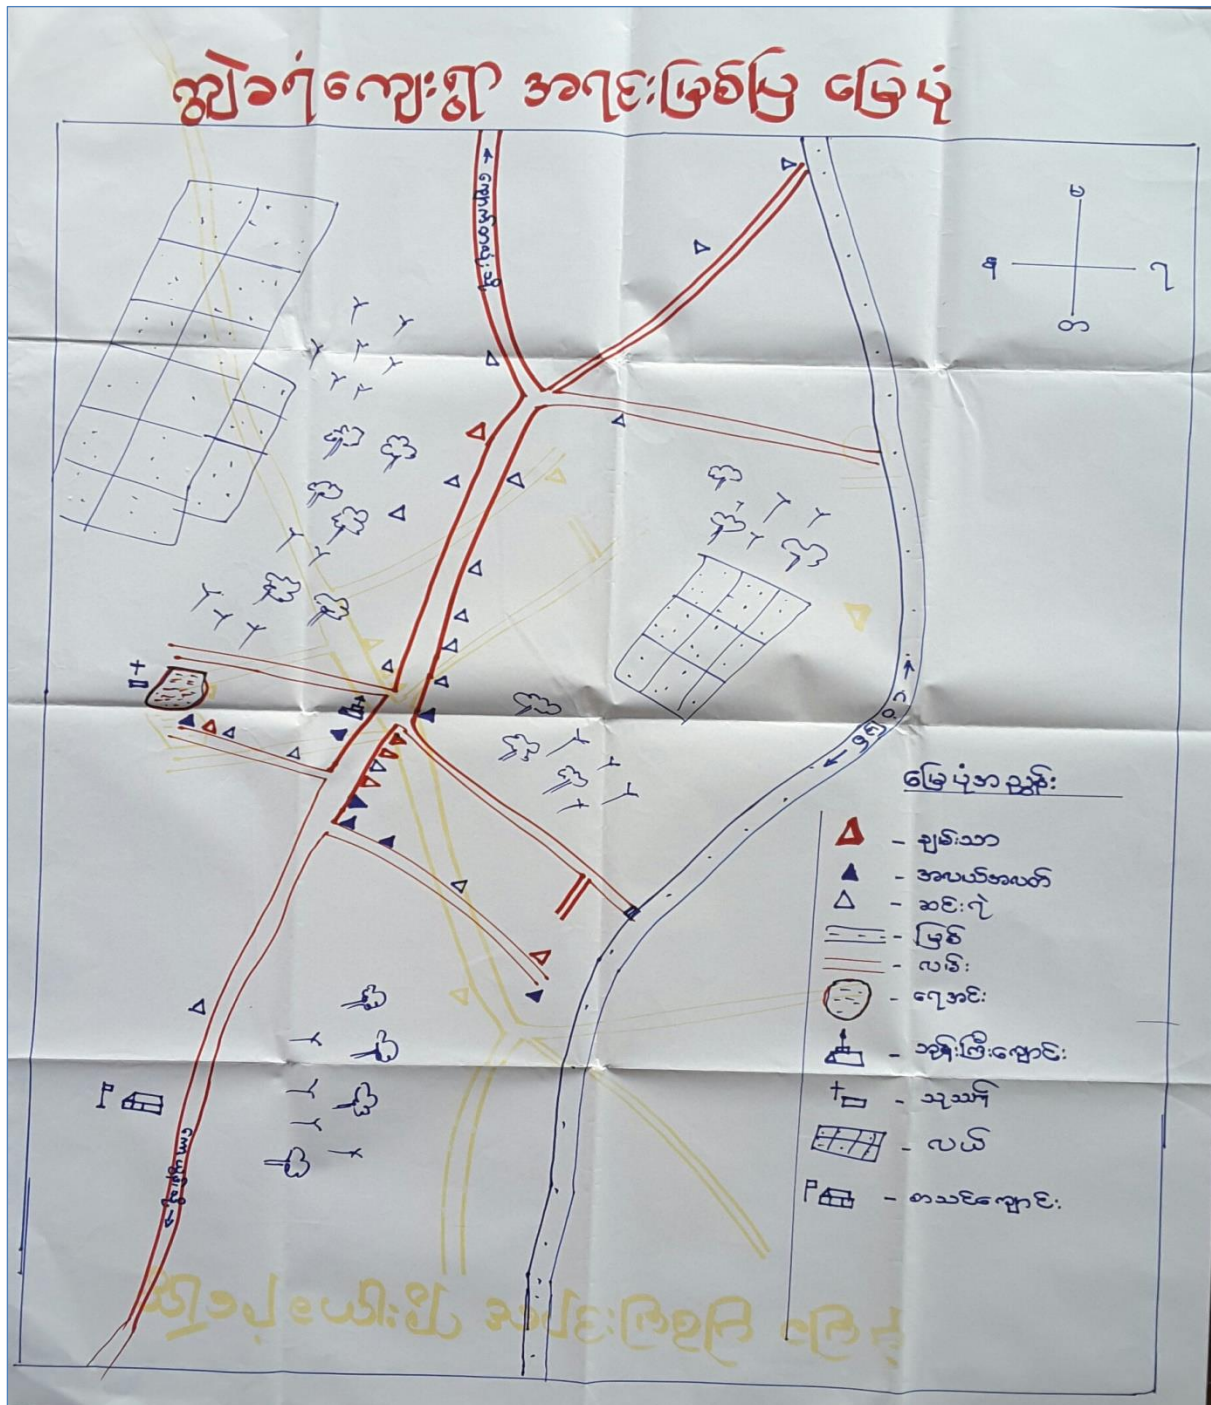 ကျွဲခရံကျေးရွာ အရင်းမြစ်ပြ မြေပုံ
မ
န
ရ
တ
မြေပုံအညွှန်း
- ချမ်းသာ
- အလယ်အလတ်
- ဆင်းရဲ
- မြစ်
- လမ်း
- ရေအင်း
- ဘုန်းကြီးကျောင်း
- သုသာန်
- လယ်
- စာသင်ကျောင်း